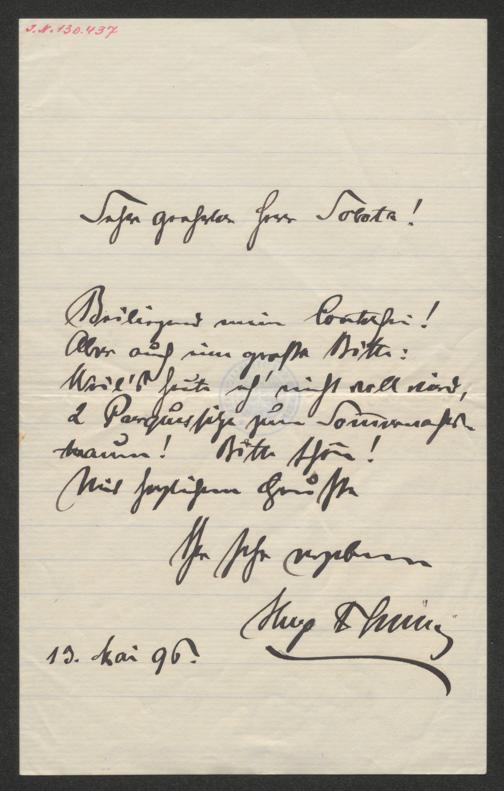 J.N. 130.437
Sehr geehrter Herr Sobota!
Beiliegend mein Conterfei!
Aber auch eine große Bitte:
Weil's heute eh' nicht voll wird,
2 Parquetsitze zum Sommernachts-
traum! Bitte schön!
Mit herzlichem Gruße
Ihr sehr ergebener
13. Mai 96.